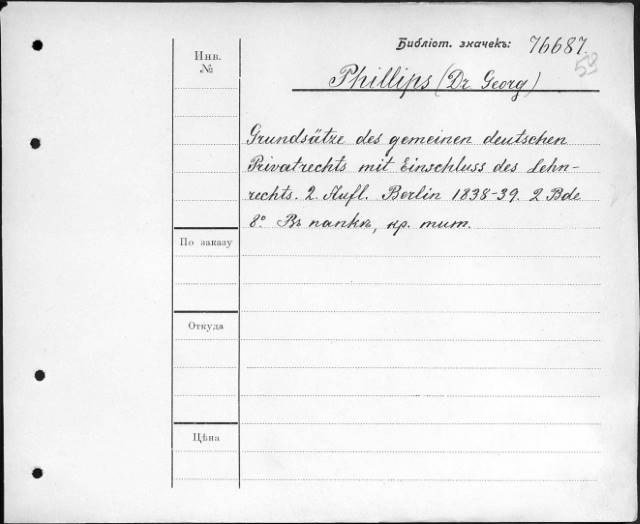 Библіот. значекъ: 76687.
53
Инв.
№
Phillips (Dr. Georg)
Grundsätze des gemeinen deutschen
Privatrechts mit Einschluss des Lehn-
rechts. 2. Aufl. Berlin 1838-39. 2 Bde
8º. Въ папкѣ, кр. тит.
По заказу
Откуда
Цѣна